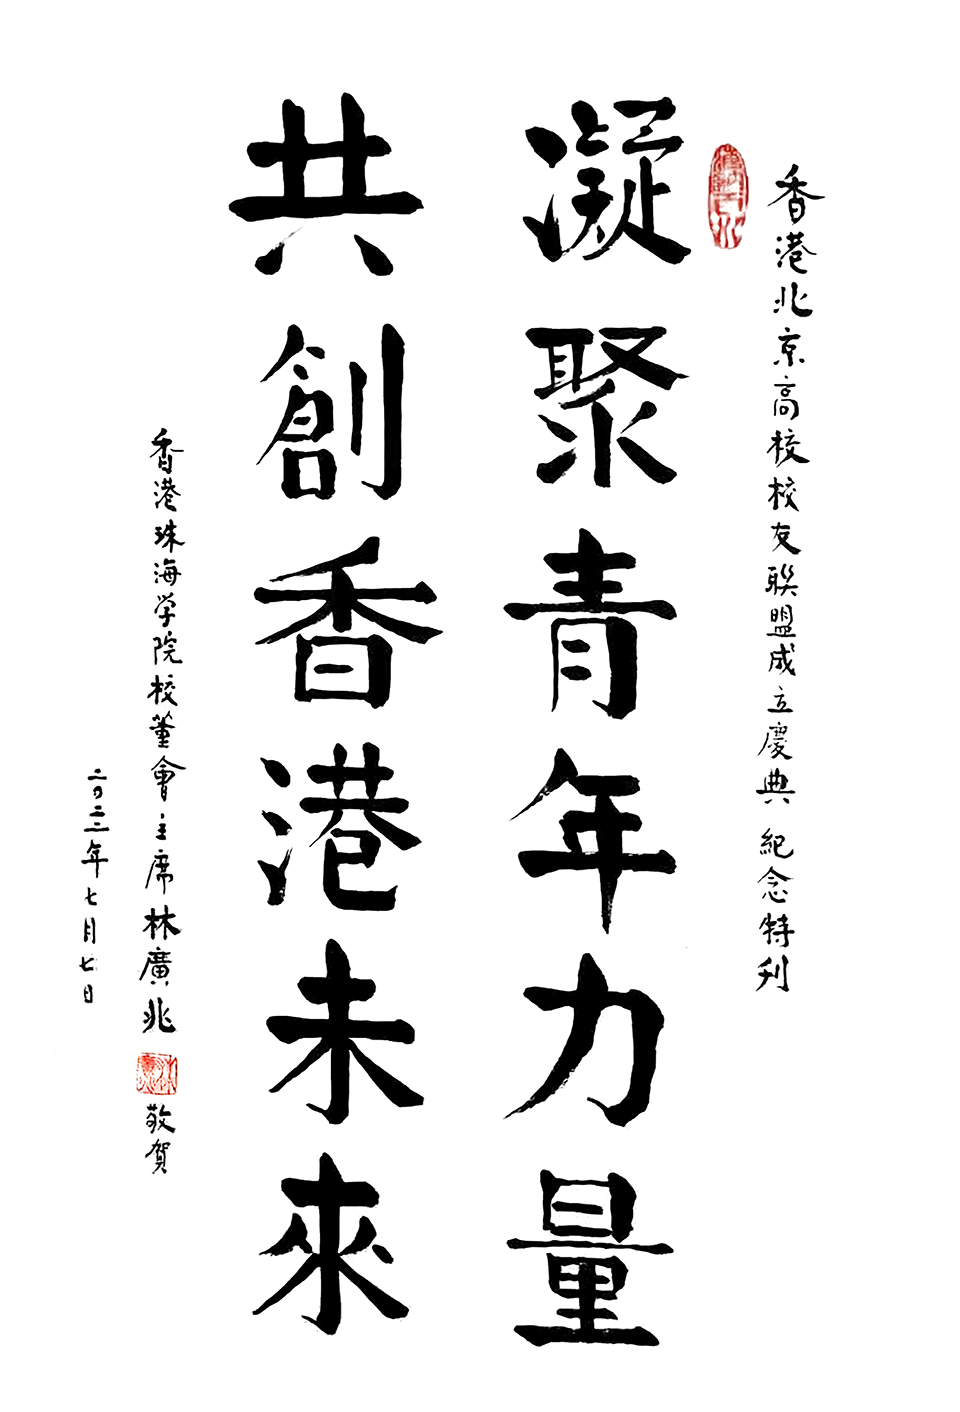 香港北京高校校友聯盟成立慶典 紀念特刊
凝聚青年力量
共創香港未來
香港珠海学院校董會主席林廣兆 敬賀
二〇二三年七月七日